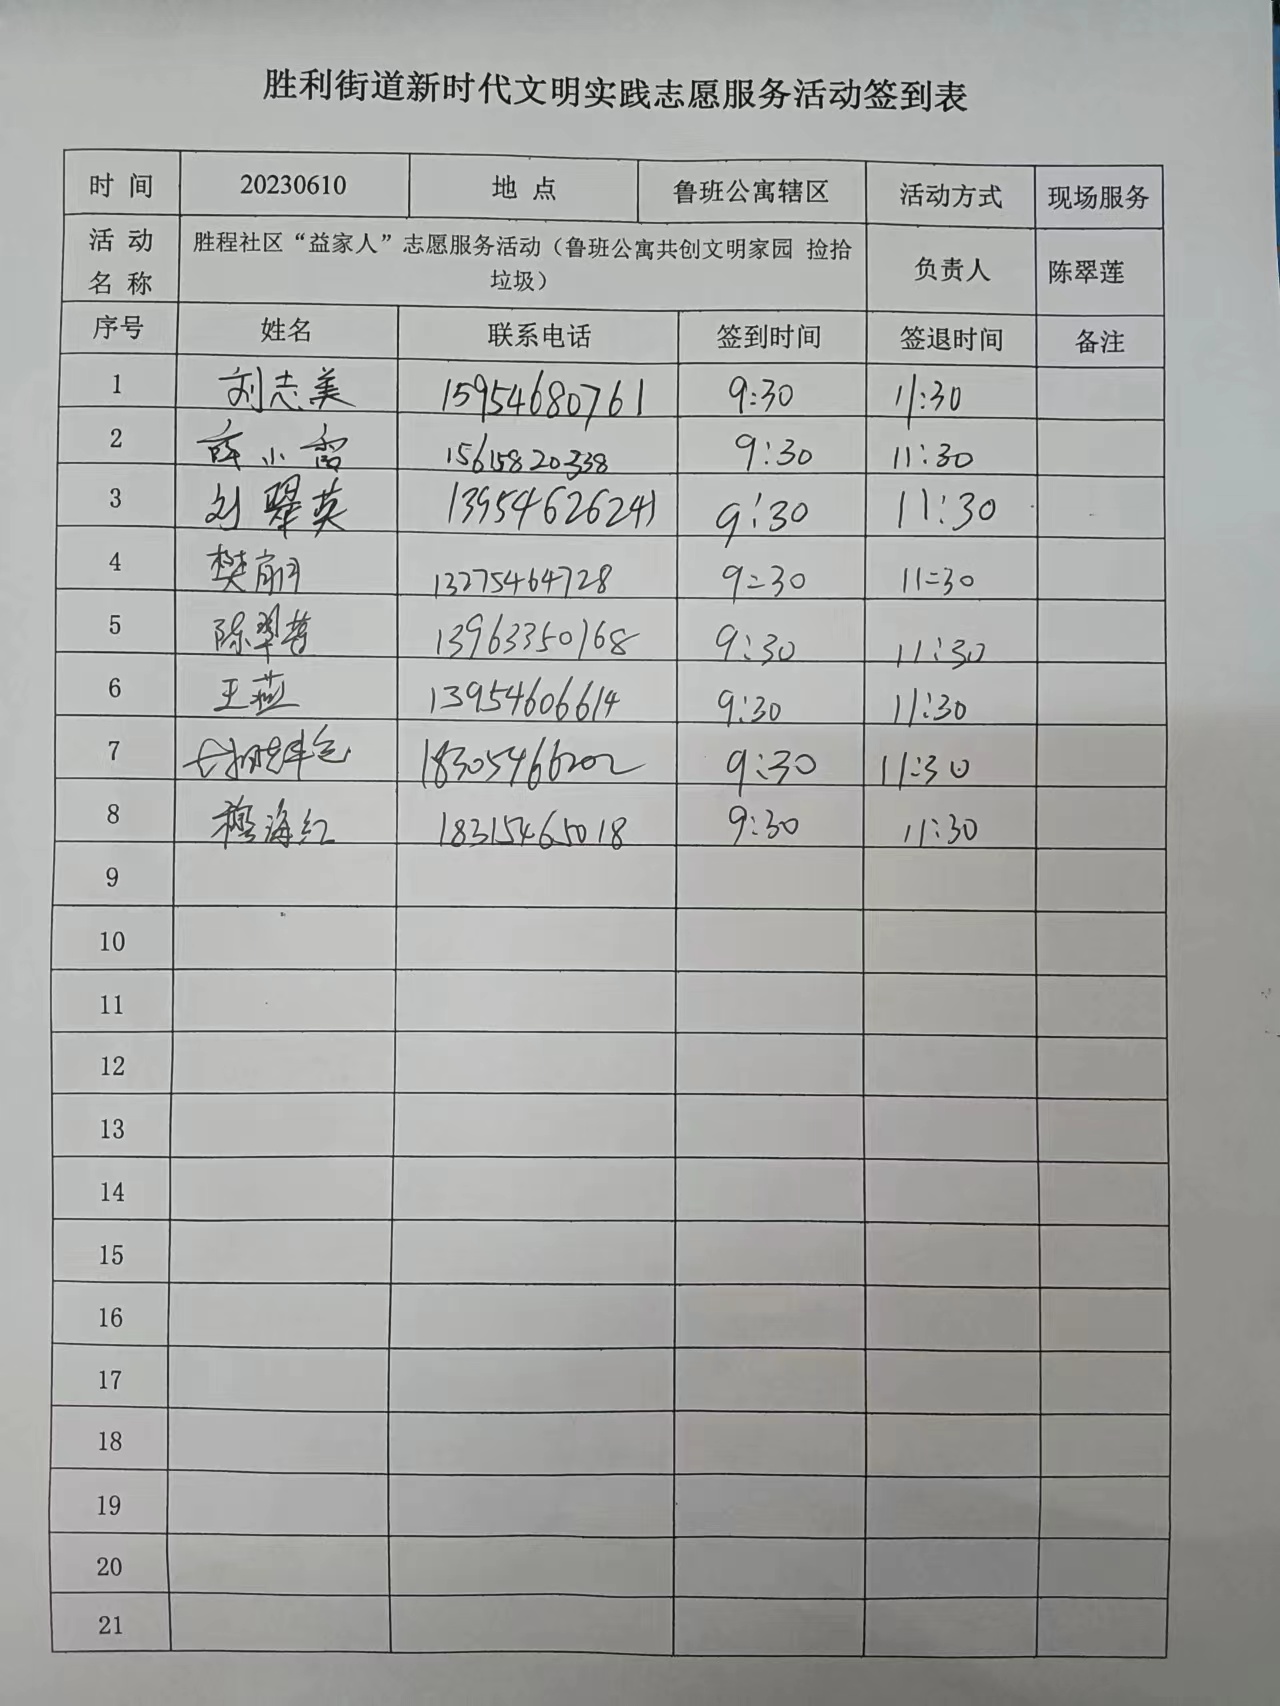 胜利街道新时代文明实践志愿服务活动签到表
时 间 20230610 地 点 鲁班公寓辖区 活动方式 现场服务
活 动 名 称 胜程社区“益家人”志愿服务活动（鲁班公寓共创文明家园 捡拾
垃圾） 负责人 陈翠莲
序号 姓名 联系电话 签到时间 签退时间 备注
1 刘志美 15954680761 9:30 11:30
2 薛小雷 15615820338 9:30 11:30
3 刘翠英 13954626241 9:30 11:30
4 樊丽 13275464728 9:30 11:30
5 陈翠 13963350168 9:30 11:30
6 王燕 13954606614 9:30 11:30
7 18305466202 9:30 11:30
8 穆海红 18315465018 9:30 11:30
9
10
11
12
13
14
15
16
17
18
19
20
21